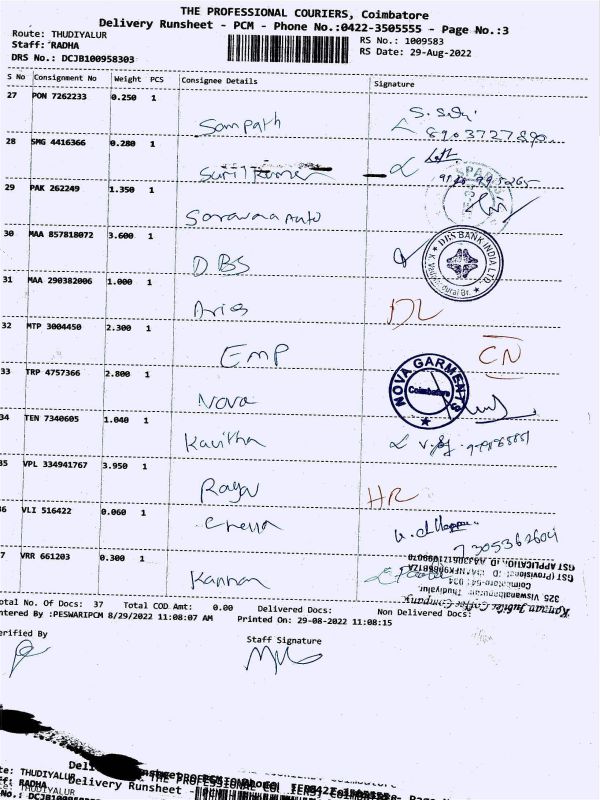 THE PROFESSIONAL COURIERS, Coimbatore
Delivery Runsheet - PCM - Phone No.:0422-3505555 - Page No.:3
Route: THUDIYALUR
RS No.: 1009583
Staff: RADHA
RS Date: 29-Aug-2022
DRS No.: DCJB100958303
S No Consignment No Weight PCS Consignee Details Signature
27 PON 7262233 0.250 1 Sampath
28 SMG 4416366 0.280 1 Sunil Kumar
29 PAK 262249 1.350 1 Saravana Auto
30 MAA 857818072 3.600 1 DBS
DBS BANK INDIA LTD.
31 MAA 290382006 1.000 1 Aries DL
32 MTP 3004450 2.300 1 EMP CN
33 TRP 4757366 2.800 1 Nova
NOVA GARMENTS Coimbatore
34 TEN 7340605 1.040 1 Kavitha
35 VPL 334941767 3.950 1 Raga HR
36 VLI 516422 0.060 1 Chella
7305362604
37 VRR 661203 0.300 1 Kannan
Total No. Of Docs: 37 Total COD Amt: 0.00 Delivered Docs: Non Delivered Docs:
Entered By :PESWARIPCM 8/29/2022 11:08:07 AM Printed On: 29-08-2022 11:08:15
Verified By Staff Signature
THUDIYALUR
RADHA
Delivery Runsheet